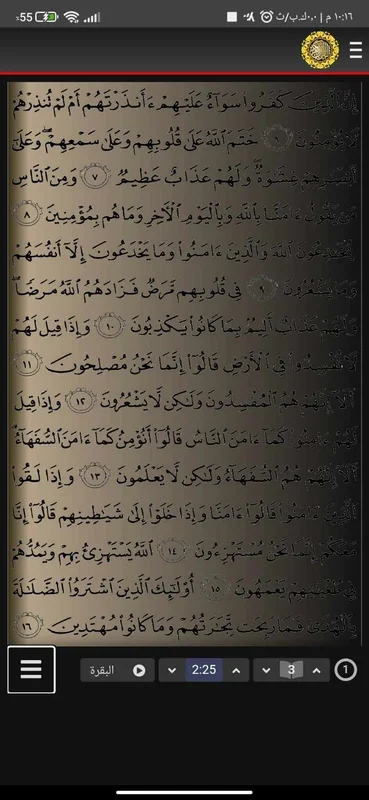 ١٠:١٦ م | ٠٫٠ ك.ب/ث
٪55
إِنَّ ٱلَّذِينَ كَفَرُوا۟ سَوَآءٌ عَلَيْهِمْ ءَأَنذَرْتَهُمْ أَمْ لَمْ تُنذِرْهُمْ
لَا يُؤْمِنُونَ ٦ خَتَمَ ٱللَّهُ عَلَىٰ قُلُوبِهِمْ وَعَلَىٰ سَمْعِهِمْ ۖ وَعَلَىٰٓ
أَبْصَـٰرِهِمْ غِشَـٰوَةٌ ۖ وَلَهُمْ عَذَابٌ عَظِيمٌ ٧ وَمِنَ ٱلنَّاسِ
مَن يَقُولُ ءَامَنَّا بِٱللَّهِ وَبِٱلْيَوْمِ ٱلْـَٔاخِرِ وَمَا هُم بِمُؤْمِنِينَ ٨
يُخَـٰدِعُونَ ٱللَّهَ وَٱلَّذِينَ ءَامَنُوا۟ وَمَا يَخْدَعُونَ إِلَّآ أَنفُسَهُمْ
وَمَا يَشْعُرُونَ ٩ فِى قُلُوبِهِم مَّرَضٌ فَزَادَهُمُ ٱللَّهُ مَرَضًا ۖ
وَلَهُمْ عَذَابٌ أَلِيمٌۢ بِمَا كَانُوا۟ يَكْذِبُونَ ١٠ وَإِذَا قِيلَ لَهُمْ
لَا تُفْسِدُوا۟ فِى ٱلْأَرْضِ قَالُوٓا۟ إِنَّمَا نَحْنُ مُصْلِحُونَ ١١
أَلَآ إِنَّهُمْ هُمُ ٱلْمُفْسِدُونَ وَلَـٰكِن لَّا يَشْعُرُونَ ١٢ وَإِذَا قِيلَ
لَهُمْ ءَامِنُوا۟ كَمَآ ءَامَنَ ٱلنَّاسُ قَالُوٓا۟ أَنُؤْمِنُ كَمَآ ءَامَنَ ٱلسُّفَهَآءُ ۗ
أَلَآ إِنَّهُمْ هُمُ ٱلسُّفَهَآءُ وَلَـٰكِن لَّا يَعْلَمُونَ ١٣ وَإِذَا لَقُوا۟
ٱلَّذِينَ ءَامَنُوا۟ قَالُوٓا۟ ءَامَنَّا وَإِذَا خَلَوْا۟ إِلَىٰ شَيَـٰطِينِهِمْ قَالُوٓا۟ إِنَّا
مَعَكُمْ إِنَّمَا نَحْنُ مُسْتَهْزِءُونَ ١٤ ٱللَّهُ يَسْتَهْزِئُ بِهِمْ وَيَمُدُّهُمْ
فِى طُغْيَـٰنِهِمْ يَعْمَهُونَ ١٥ أُو۟لَـٰٓئِكَ ٱلَّذِينَ ٱشْتَرَوُا۟ ٱلضَّلَـٰلَةَ
بِٱلْهُدَىٰ فَمَا رَبِحَت تِّجَـٰرَتُهُمْ وَمَا كَانُوا۟ مُهْتَدِينَ ١٦
البقرة
2:25
3
1